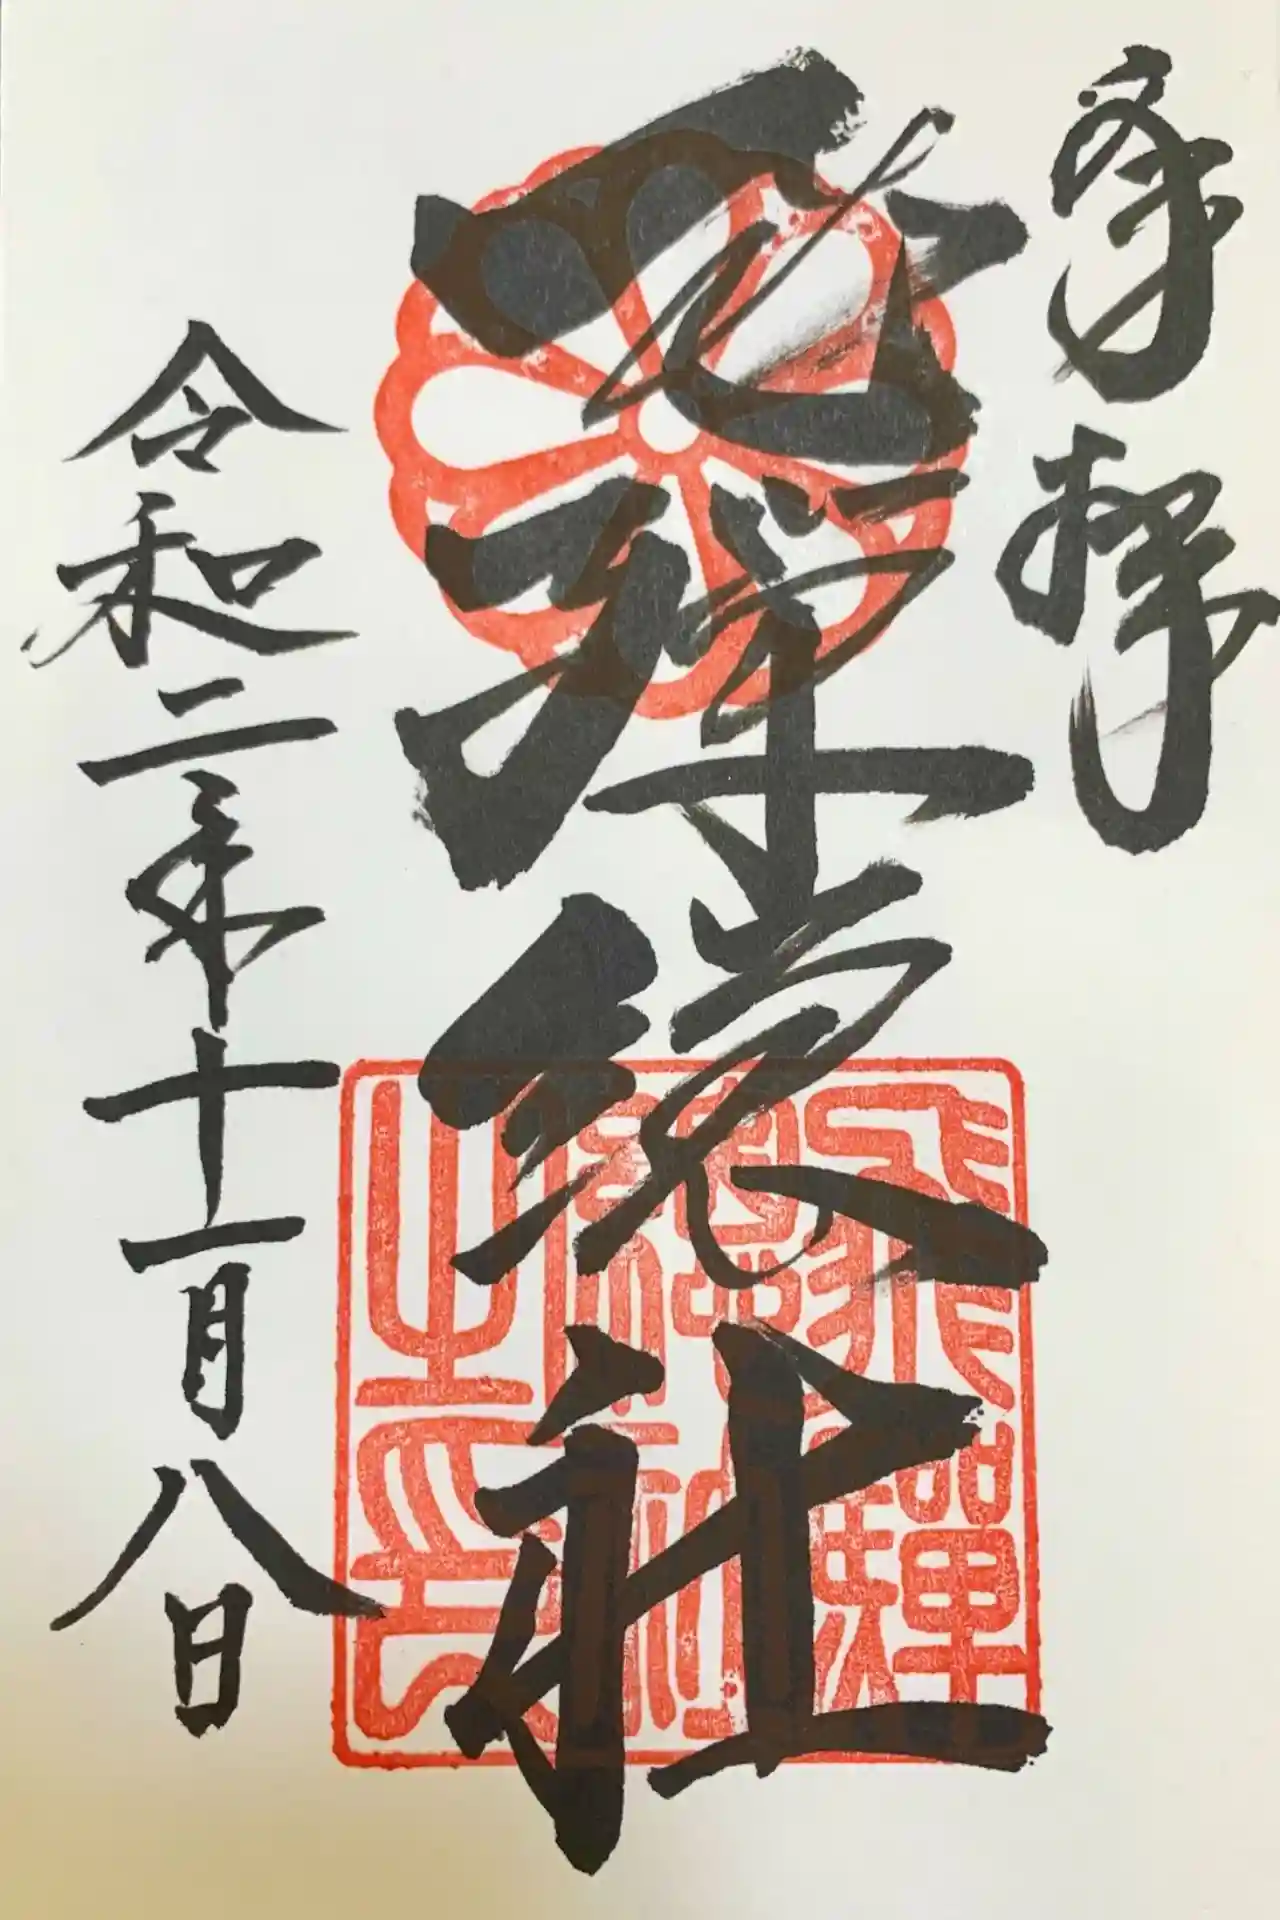 奉拝
飛弾総社
令和二年十一月八日
飛驒
總社
之印